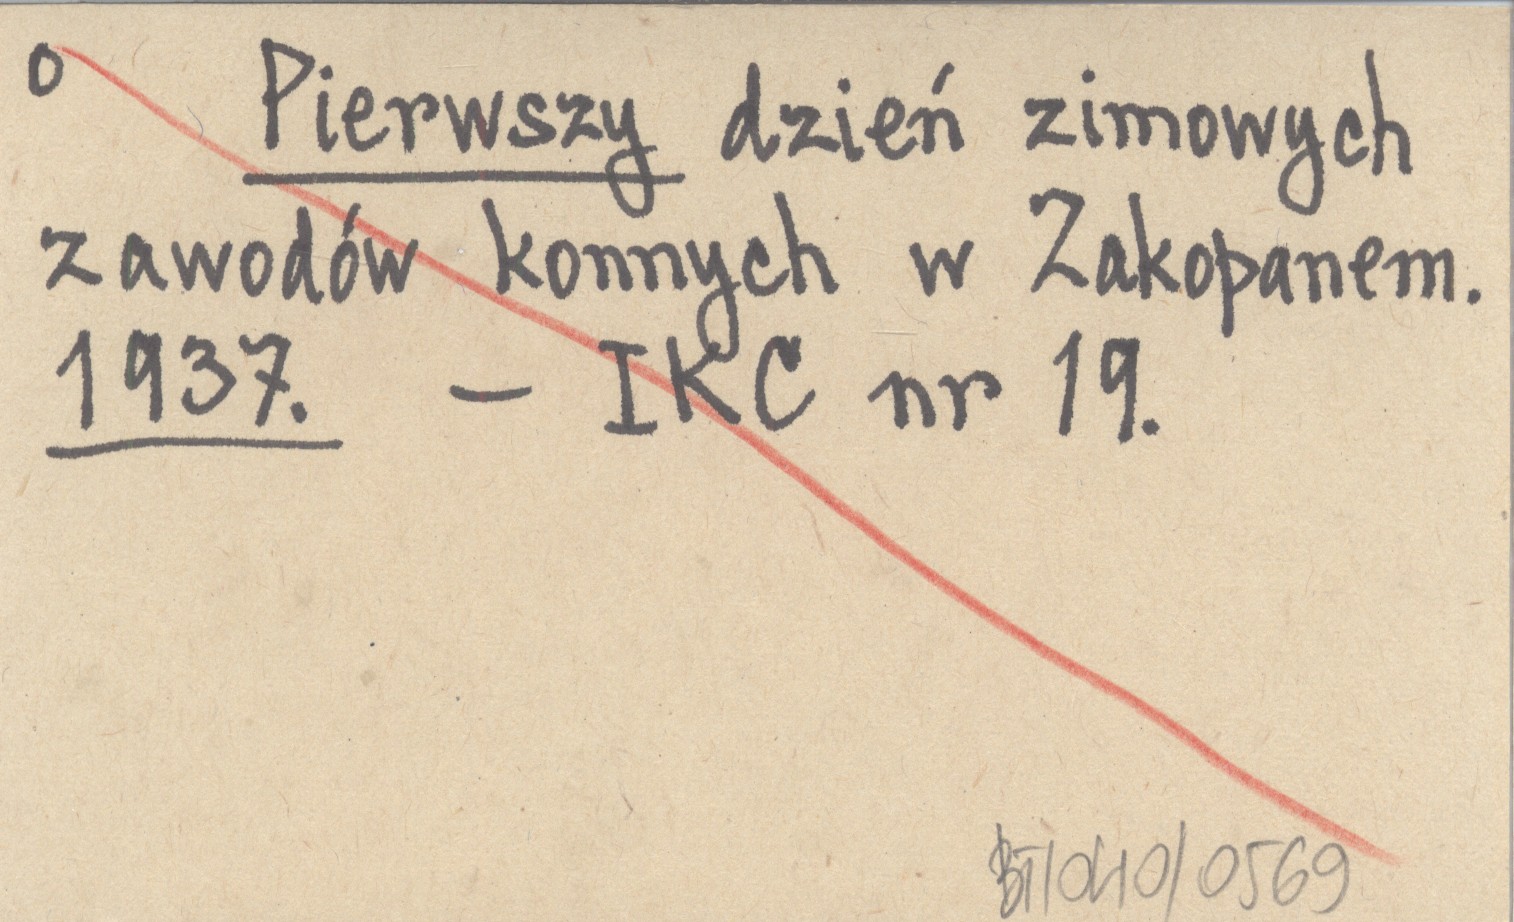 o Pierwszy dzień zimowych
zawodów konnych w Zakopanem.
1937. – IKC nr 19.
BT/040/0569